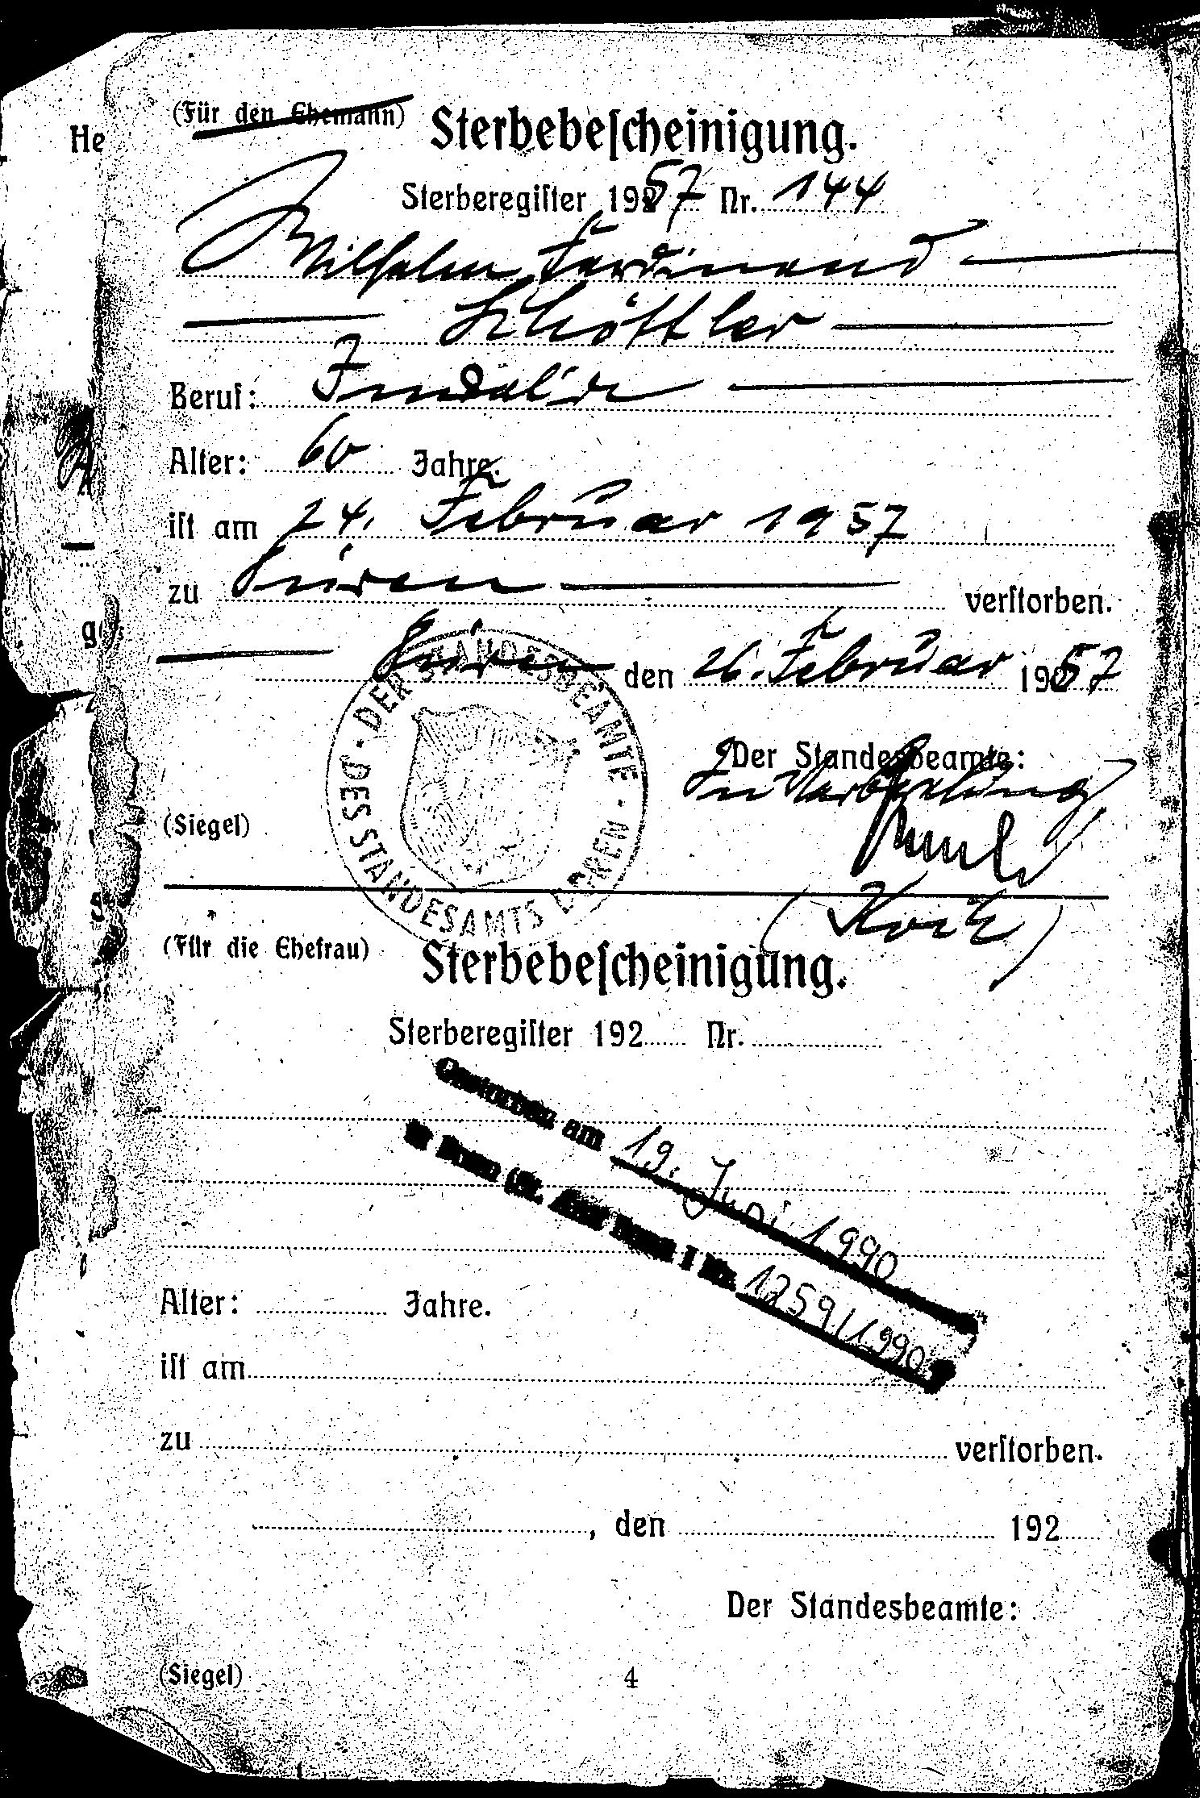 He
(Für den Ehemann)
Sterbebeſcheinigung.
Sterberegiſter 1957 Nr. 144
Wilhelm Ferdinand
Schöttler
Beruf: Invalide
Alter: 60 Jahre.
iſt am 24. Februar 1957
zu Düren verſtorben.
Düren den 26. Februar 1957
Der Standesbeamte:
In Vertretung
(Siegel)
DER STANDESBEAMTE · DES STANDESAMTS DÜREN ·
(Für die Ehefrau)
Sterbebeſcheinigung.
Sterberegiſter 192 Nr.
Gestorben am 19. Juni 1990
in Bonn (St. Amt Bonn I Nr. 1259/1990)
Alter: Jahre.
iſt am
zu verſtorben.
, den 192
Der Standesbeamte:
(Siegel)
4